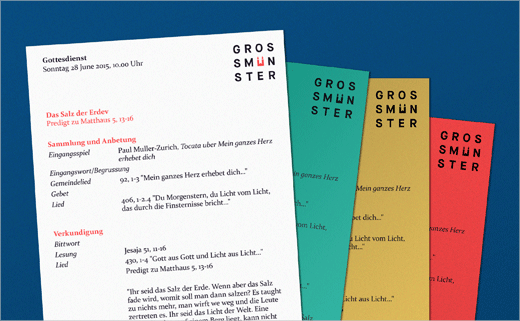 Gottesdienst
Sonntag 28 June 2015, 10.00 Uhr
GROS
SMÜN
STER
Das Salz der Erdev
Predigt zu Matthaus 5, 13-16
Sammlung und Anbetung
Eingangsspiel Paul Muller-Zurich, Tocaza uber Mein ganzes Herz
erhebet dich
Eingangswort/Begrussung
Gemeindelied 92, 1-3 "Mein ganzes Herz erhebet dich..."
Gebet
Lied 406, 1-2.4 "Du Morgenstern, du Licht vom Licht,
das durch die Finsternisse bricht..."
Verkundigung
Bittwort
Lesung Jesaja 51, 11-16
Lied 430, 1-4 "Gott aus Gott und Licht aus Licht..."
Predigt zu Matthaus 5, 13-16
"Ihr seid das Salz der Erde. Wenn aber das Salz
fade wird, womit soll man dann salzen? Es taught
zu nichts mehr, man wirft we weg und die Leute
zertreten es. Ihr seid das Licht der Welt. Eine
Berg liegt, kann nicht
GROS
SMÜN
STER
Mein ganzes Herz
ebet dich..."
Licht vom Licht,
icht..."
t aus Licht..."
n aber das Salz
lzen? Es taught
g und die Leute
er Welt. Eine
, kann nicht
GROS
SMÜN
STER
Mein ganzes Herz
bet dich..."
u Licht vom Licht,
icht..."
t aus Licht..."
n aber das Salz
lzen? Es taught
GROS
SMÜN
STER
ganzes Herz
dich..."
vom Licht,
Licht..."